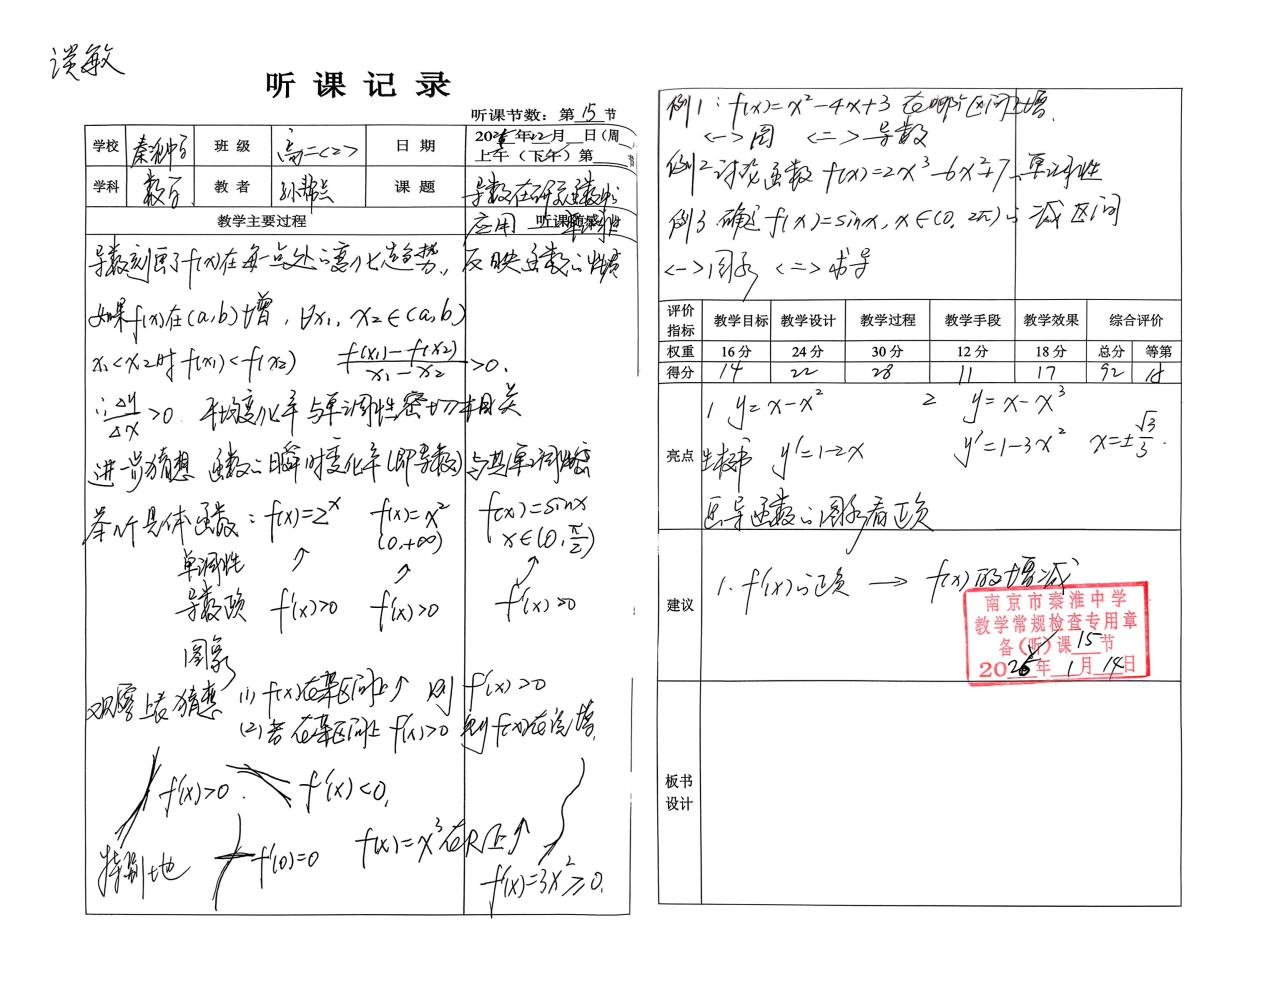 谈敏
听课记录
听课节数：第15节
学校 秦淮中学 班级 高二<2> 日期 年12月 日（周
上午（下午）第
学科 数学 教者 课题 导数在研究函数中
应用
教学主要过程 听课随感
导数刻画了f(x)在每一点处的变化趋势，反映函数的
如果f(x)在(a,b)增，∀x₁，x₂∈(a,b)
x₁<x₂时 f(x₁)<f(x₂) (f(x₁)-f(x₂))/(x₁-x₂)>0.
∴Δy/Δx>0 平均变化率与单调性密切相关
进一步猜想 函数的瞬时变化率(即导数)与其单调性
举几个具体函数：f(x)=2ˣ f(x)=x² (0,+∞) f(x)=sinx x∈(0,π/2)
单调性 ↗ ↗ ↗
导数正负 f'(x)>0 f'(x)>0 f'(x)>0
图象
观察上表猜想 (1) f(x)在某区间上↗ 则 f'(x)>0
(2)若在某区间上 f'(x)>0 则f(x)在 增.
f'(x)>0. f'(x)<0,
特别地 f'(0)=0 f(x)=x³在R上↗
f'(x)=3x²≥0.
例1：f(x)=x²-4x+3 在哪个区间上增.
<->图 <=>导数
例2 讨论函数 f(x)=2x³-6x²+7的单调性
例3 确定 f(x)=sinx, x∈(0, 2π)的减区间
<->图象 <=>求导
评价指标 教学目标 教学设计 教学过程 教学手段 教学效果 综合评价
权重 16分 24分 30分 12分 18分 总分 等第
得分 14 22 28 11 17 92
亮点
1. y=x-x² 2 y=x-x³
y'=1-2x y'=1-3x² x=±√3/3.
导函数的图象看正负
建议
1. f'(x)的正负 → f(x)的增减
南京市秦淮中学
教学常规检查专用章
备(听)课15节
202 年1月14日
板书设计